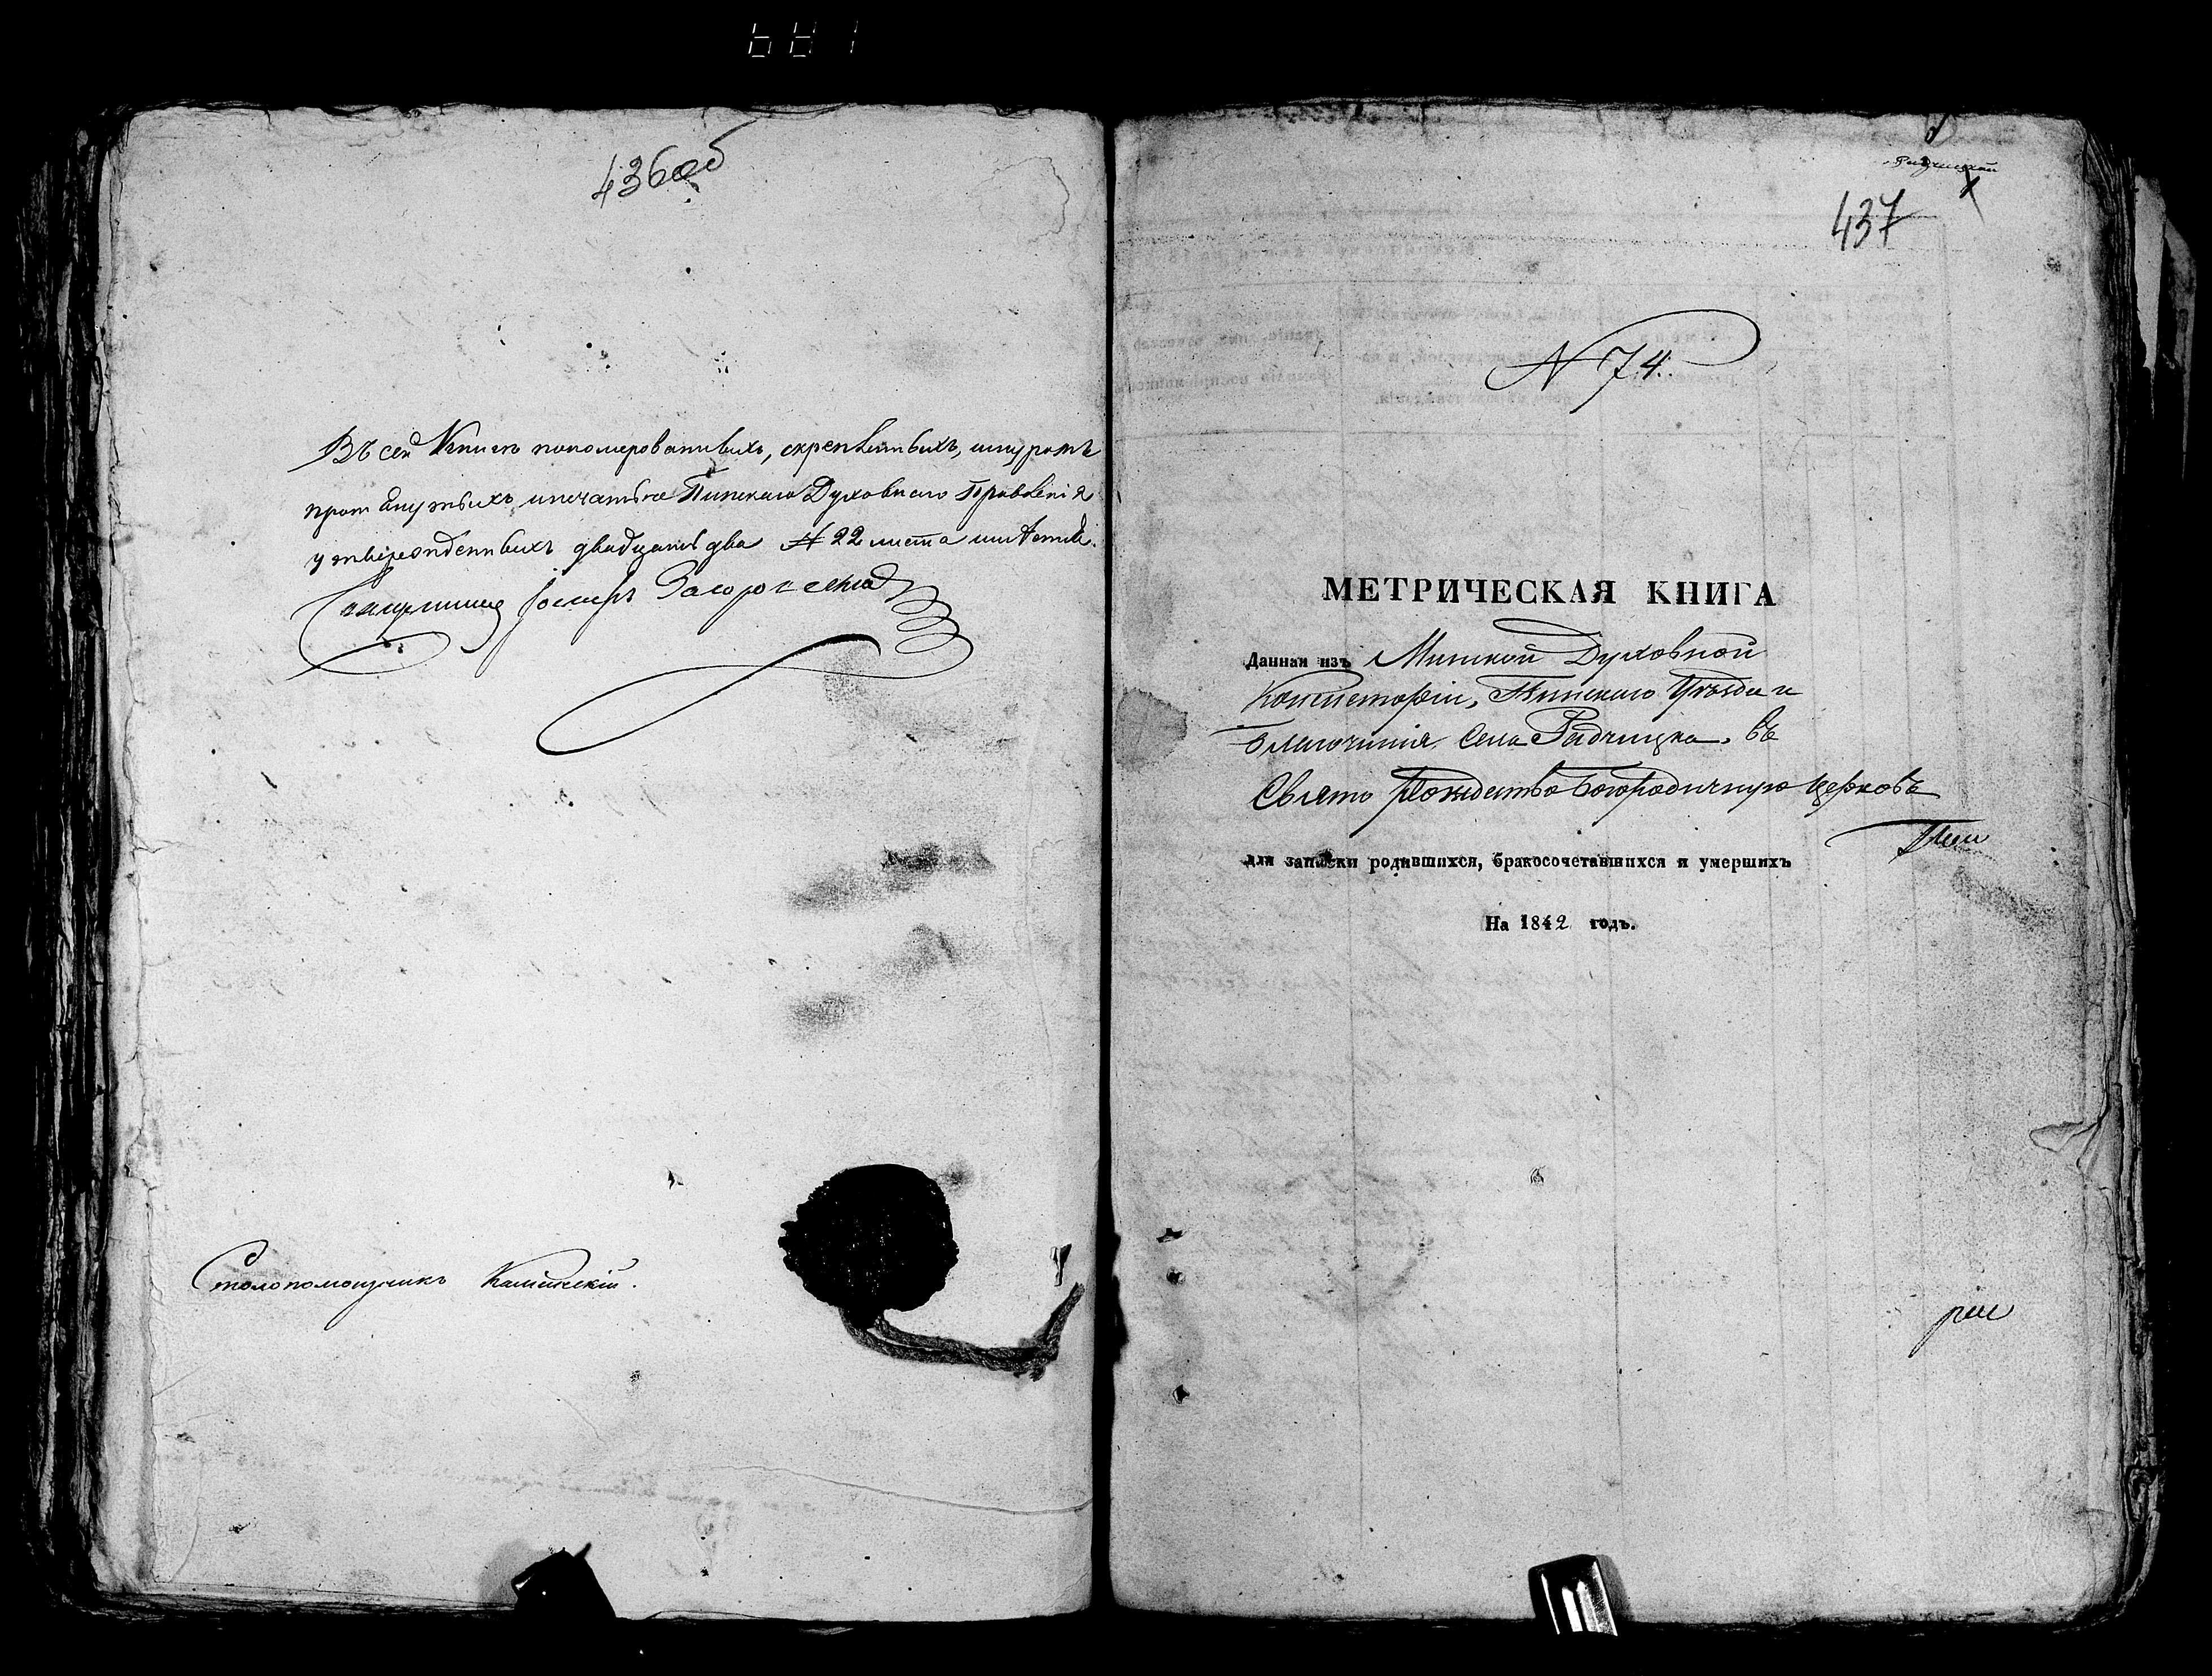 436 об
Въ сей Книгѣ пономерованныхъ, скрепленныхъ, шнуромъ
протянутыхъ и печатью Пинскаго Духовнаго Правленія
утвержденныхъ двадцать два № 22 листа
Іосифъ
Столопомощникъ Калинскій.
Радчицкой
437
N 74.
МЕТРИЧЕСКАЯ КНИГА
Данная изъ Минской Духовной
Консисторіи, Пинскаго Уѣзда и
Благочинія Села Радчицка. въ
Свято Рождество Богородичную Церковь
для записки родившихся, бракосочетавшихся и умершихъ
На 1842 годъ.